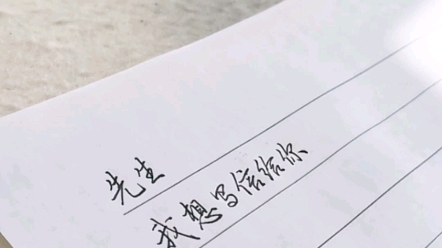 先生
我想写信给你